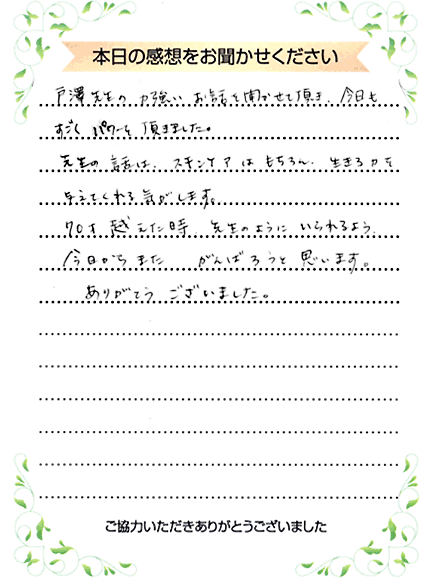 本日の感想をお聞かせください
戸澤先生の力強いお話を聞かせて頂き、今日も
すごくパワーを頂きました。
先生の話は、スキンケアはもちろん、生きる力を
与えてくれる気がします。
70才越えた時、先生のようにいられるよう、
今日からまた がんばろうと思います。
ありがとうございました。
ご協力いただきありがとうございました